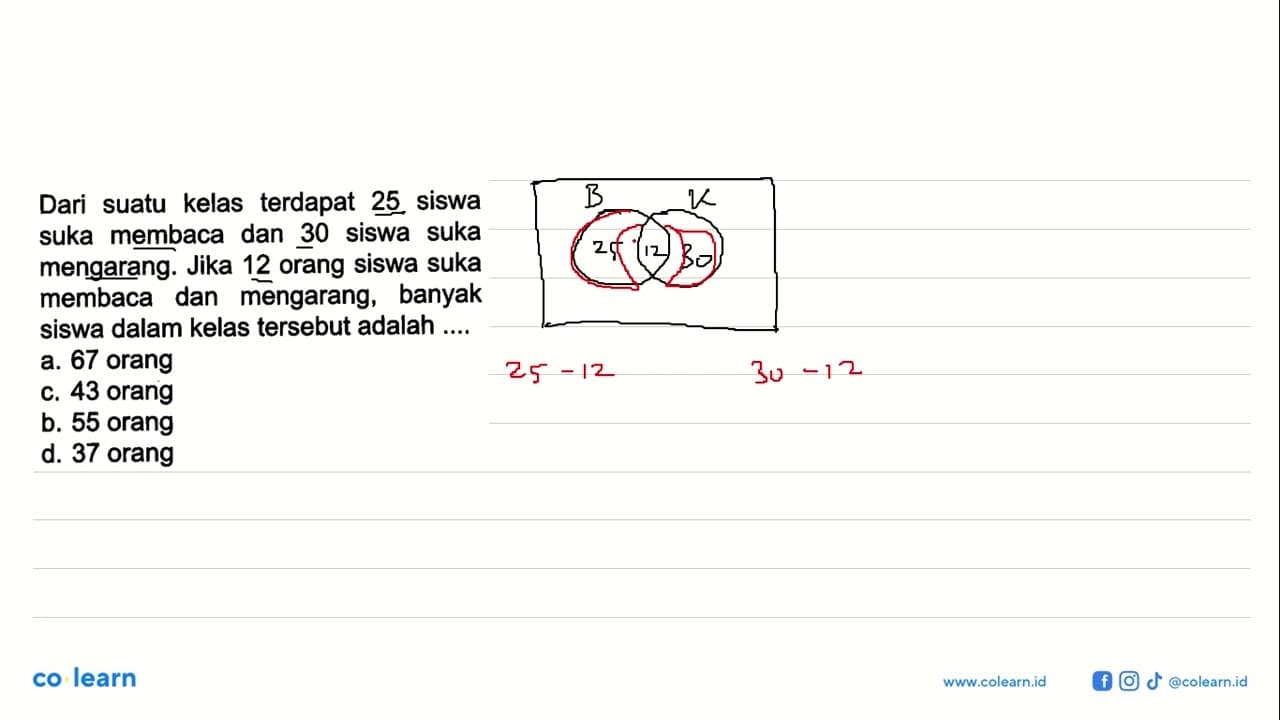 Dari suatu kelas terdapat 25 siswa
suka membaca dan 30 siswa suka
mengarang. Jika 12 orang siswa suka
membaca dan mengarang, banyak
siswa dalam kelas tersebut adalah ....
a. 67 orang
c. 43 orang
b. 55 orang
d. 37 orang
B K
25 12 30
25 - 12 30 - 12
co learn
www.colearn.id @colearn.id